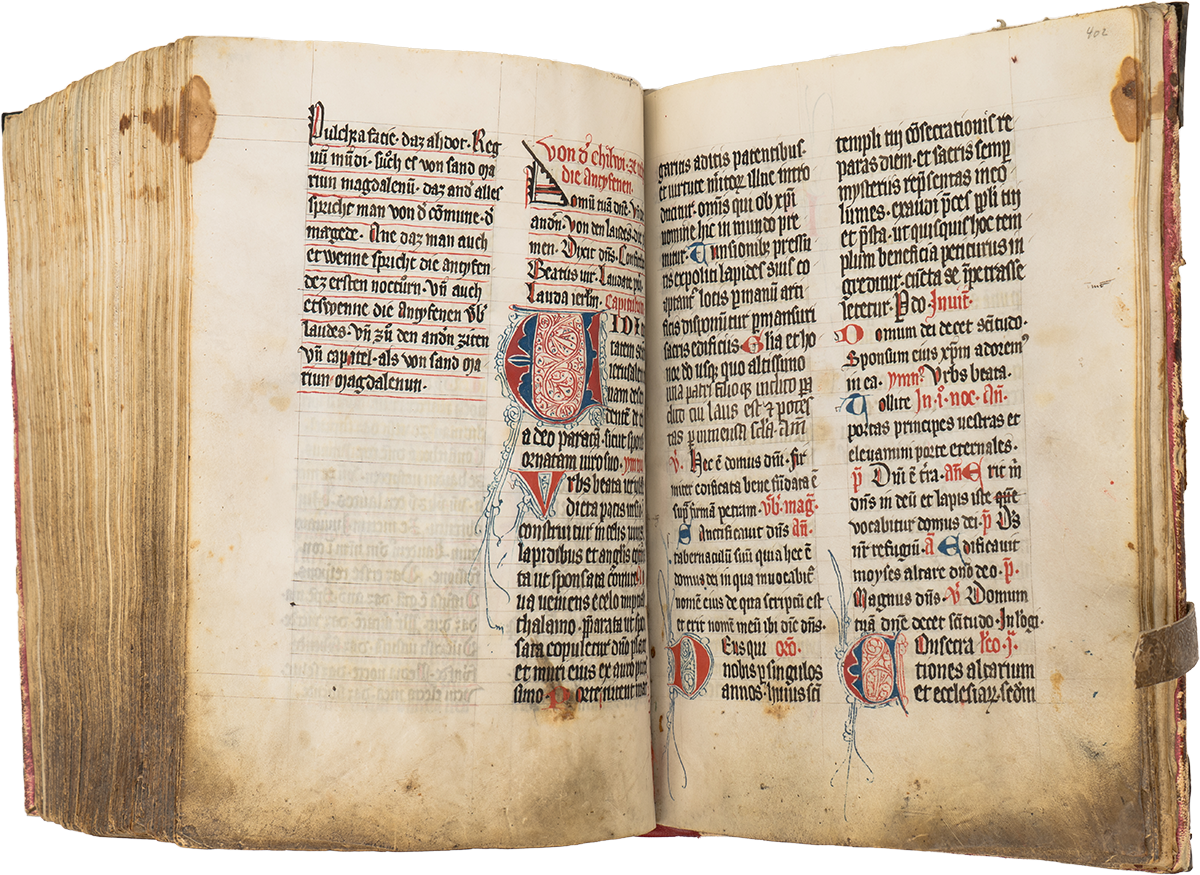 Pulchra facie. daz ahdot. Reg
nū mūdi. sūch es von sand ma
riun magdalenū. daz and alles
spricht man von d cōmune. d
margete. Ane daz man auch
et wenne spricht die ancyfen
dez ersten nocturn. vn̄ auch
etswenne die ancyfenen
laudes. vn̄ zu den andn ziten
vn̄ capatel. als von sand ma
riun magdalenun.
Von d' chilwi.
die ancyfenen.
Domū tuā dn̄e.
andn. von den laudes.
men. Dixit dn̄s.
Beatus uir. Laudate
Lauda ierlm. Capitulum
Uidi
tatem
ierusalem
uam
dentē
a deo paratā. sicut
ornatam uiro suo. ymn
Urbs beata
dicta pacis
construitur in celis uiuis
lapidibus et anglis
ta ut sponsata
ua ueniens e celo
thalamo. p̄parata ut
sata copuletur dn̄o
et muri eius ex auro
simo. Porte nitent mar
garitis aditis patentibus.
et uirtute mitor illuc intro
ducitur. omnis qui ob xp̄i
nomine hic in mundo pre
mitur. Tunsionib; pressu
ris expoliti lapides suis co
aptant' locis p manū arti
ficis disponuntur pmansuri
sacris edificiis. Glia et ho
nor do usq; quo altissimo
una patri filioq; inclito pa
clito cui laus est & potes
tas p inmensa scla. am̄
v. Hec ē domus dn̄i. fir
miter edificata bene fūdata ē
sup̄ firmā petram. vb. mag.
Sanctificauit dn̄s an̄.
tabernaculū suū quia hec ē
domus dei in qua inuocabit'
nomē eius de qua scriptū est
et erit nomē meū ibi dic̄ dn̄s.
Deus qui orō.
nobis p singulos
annos. huius sci
templi tui cōsecrationis re
paras diem. et sacris semp
mysteriis repn̄sentas inco
lumes. exaudi pces ppli tui
et p̄sta. ut quisquis hoc tem
plum beneficia petiturus in
greditur. cūcta se īpetrasse
letetur. P do. Inuit.
Domum dei decet sc̄itudo.
Sponsum eius xp̄m adorem'
in ea. ymn. Urbs beata.
Tollite In. i. noc. an̄.
portas principes uestras et
eleuamini porte eternales.
p Dn̄i ē t̄ra. an̄ Erit m̄
dn̄s in deū et lapis iste que
uocabitur domus dei. p Ds
nr̄ refugiū. a Edificauit
moyses altare dn̄o deo. p.
Magnus dn̄s. v Domum
tuā dn̄e decet sc̄itudo. In logi.
Consecra lc̄o. i.
tiones altarium
et ecclesiar. sedm̄
402